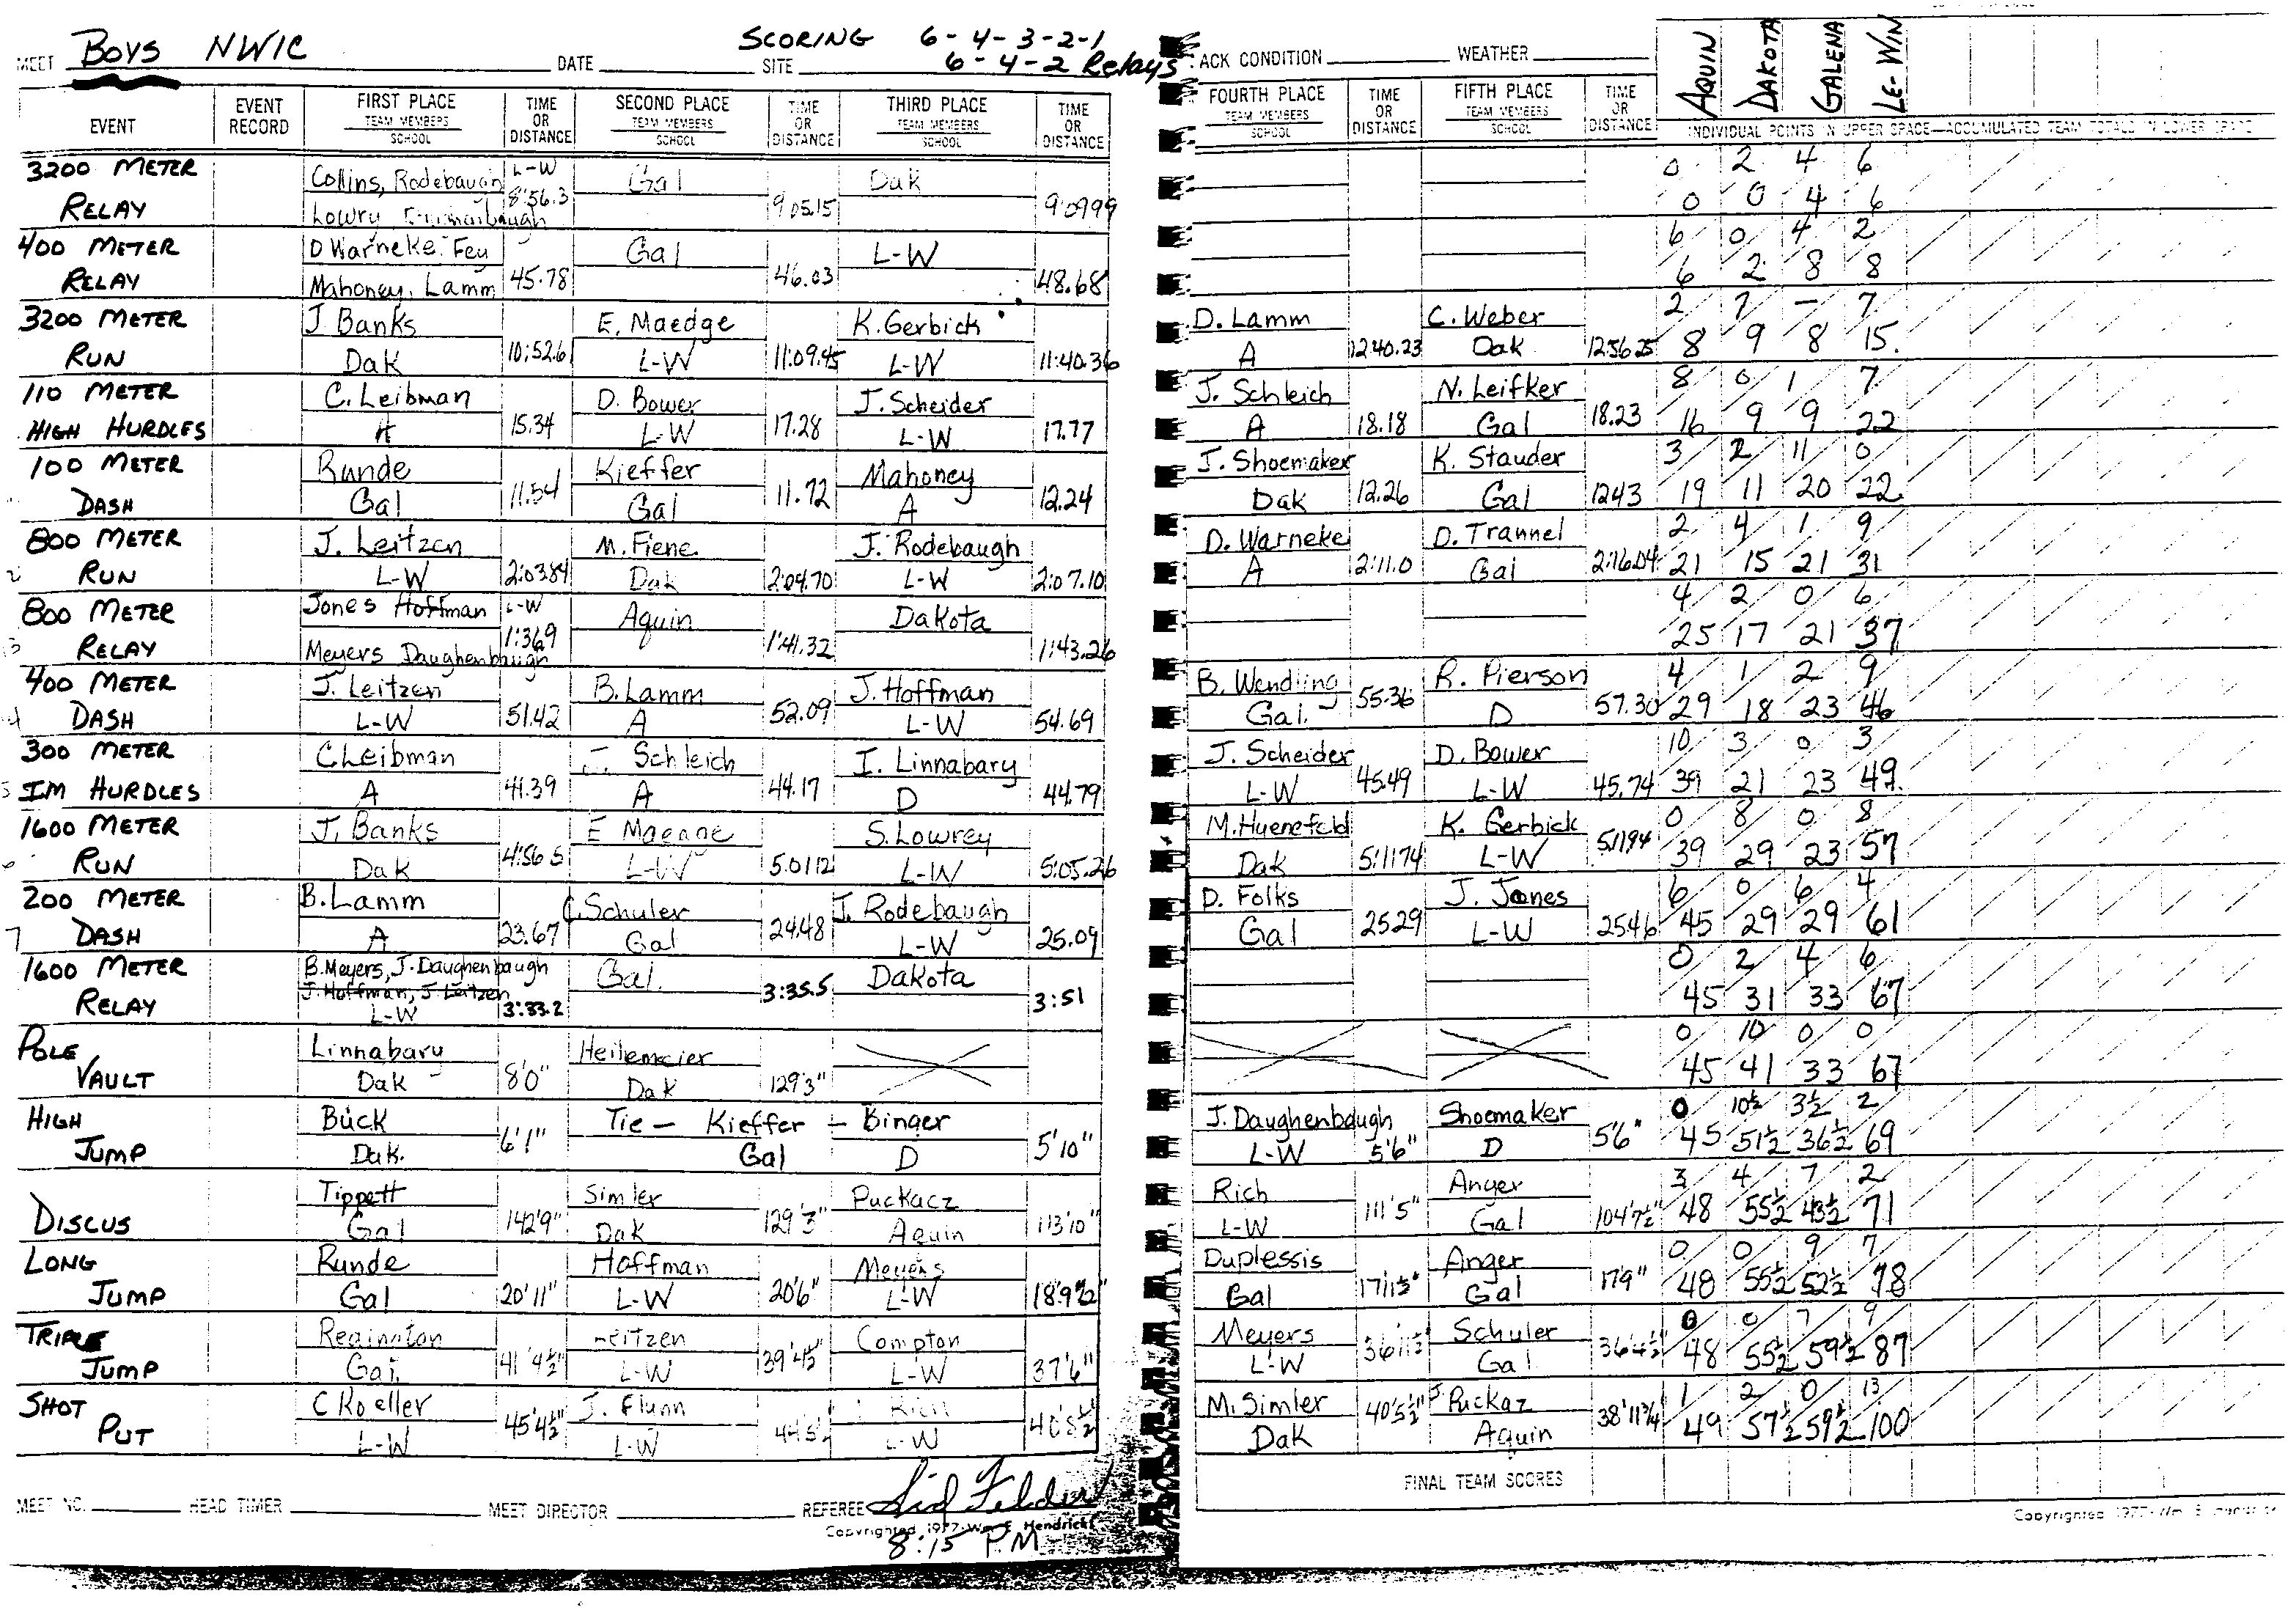 MEET BOYS NWIC DATE SITE SCORING 6-4-3-2-1
6-4-2 Relays
ACK CONDITION WEATHER
AQUIN DAKOTA GALENA LE-WIN
EVENT EVENT RECORD FIRST PLACE TEAM MEMBERS SCHOOL TIME OR DISTANCE SECOND PLACE TEAM MEMBERS SCHOOL TIME OR DISTANCE THIRD PLACE TEAM MEMBERS SCHOOL TIME OR DISTANCE FOURTH PLACE TEAM MEMBERS SCHOOL TIME OR DISTANCE FIFTH PLACE TEAM MEMBERS SCHOOL TIME OR DISTANCE
INDIVIDUAL POINTS IN UPPER SPACE—ACCUMULATED TEAM TOTALS IN LOWER SPACE
3200 METER Collins, Rodebaugh L-W Gal Dak 0 2 4 6
RELAY Lowry 8:56.3 9:05.15 9:09.99 0 0 4 6
400 METER D Warneke Fey Gal L-W 6 0 4 2
RELAY Mahoney, Lamm 45.78 46.03 48.68 6 2 8 8
3200 METER J Banks E. Maedge K. Gerbick D. Lamm C. Weber 2 7 - 7
RUN Dak 10:52.6 L-W 11:09.45 L-W 11:40.36 A 12:40.23 Dak 12:56.25 8 9 8 15
110 METER C. Leibman D. Bower J. Scheider J. Schleich N. Leifker 8 0 1 7
HIGH HURDLES A 15.34 L-W 17.28 L-W 17.77 A 18.18 Gal 18.23 16 9 9 22
100 METER Runde Kieffer Mahoney J. Shoemaker K. Stauder 3 2 11 0
DASH Gal 11.54 Gal 11.72 A 12.24 Dak 12.26 Gal 12.43 19 11 20 22
800 METER J. Leitzen M. Fiene J. Rodebaugh D. Warneke D. Trannel 2 4 1 9
2 RUN L-W 2:03.84 Dak 2:04.70 L-W 2:07.10 A 2:11.0 Gal 2:16.04 21 15 21 31
800 METER Jones Hoffman L-W Aquin Dakota 4 2 0 6
3 RELAY Meyers Daughenbaugh 1:36.9 1:41.32 1:43.26 25 17 21 37
400 METER J. Leitzen B. Lamm J. Hoffman B. Wendling R. Pierson 4 1 2 9
4 DASH L-W 51.42 A 52.09 L-W 54.69 Gal. 55.36 D 57.30 29 18 23 46
300 METER C Leibman Schleich I. Linnabary J. Scheider D. Bower 10 3 0 3
5 IM HURDLES A 41.39 A 44.17 D 44.79 L-W 45.49 L-W 45.74 39 21 23 49
1600 METER J. Banks E Maedge S. Lowrey M. Huenefeld K. Gerbick 0 8 0 8
6 RUN Dak 4:56.5 L-W 5:01.12 L-W 5:05.26 Dak 5:11.74 L-W 5:11.94 39 29 23 57
200 METER B. Lamm C. Schuler J. Rodebaugh D. Folks J. Jones 6 0 6 4
7 DASH A 23.67 Gal 24.48 L-W 25.09 Gal 25.29 L-W 25.46 45 29 29 61
1600 METER B. Meyers, J. Daughenbaugh Gal. Dakota 0 2 4 6
RELAY J. Hoffman, J Leitzen L-W 3:33.2 3:35.5 3:51 45 31 33 67
POLE Linnabary Heilemeier 0 10 0 0
VAULT Dak 8'0" Dak 129'3" 45 41 33 67
HIGH Buck Tie - Kieffer - Binger J. Daughenbaugh Shoemaker 0 10½ 3½ 2
JUMP Dak. 6'1" Gal D 5'10" L-W 5'6" D 5'6" 45 51½ 36½ 69
Tippett Simler Puckacz Rich Anger 3 4 7 2
DISCUS Gal 142'9" Dak 129'3" Aquin 113'10" L-W 111'5" Gal 104'7½" 48 55½ 43½ 71
LONG Runde Hoffman Meyers Duplessis Anger 0 0 9 7
JUMP Gal 20'11" L-W 20'6" L-W 18'9½" Gal 17'11½" Gal 17'9" 48 55½ 52½ 78
TRIPLE Leitzen Compton Meyers Schuler 0 0 7 9
JUMP Gal. 41'4½" L-W 39'4½" L-W 37'6" L-W 36'11½" Gal 36'4½" 48 55½ 59½ 87
SHOT C Koeller J. Flynn Rich M. Simler J. Puckaz 1 2 0 13
PUT L-W 45'4½" L-W L-W 40'8½" Dak 40'5½" Aquin 38'11¾" 49 57½ 59½ 100
FINAL TEAM SCORES
MEET NO. HEAD TIMER MEET DIRECTOR REFEREE Sid Felder
Copyrighted 1977-Wm. E. Hendricks
8:15 PM
Copyrighted 1977-Wm. E.